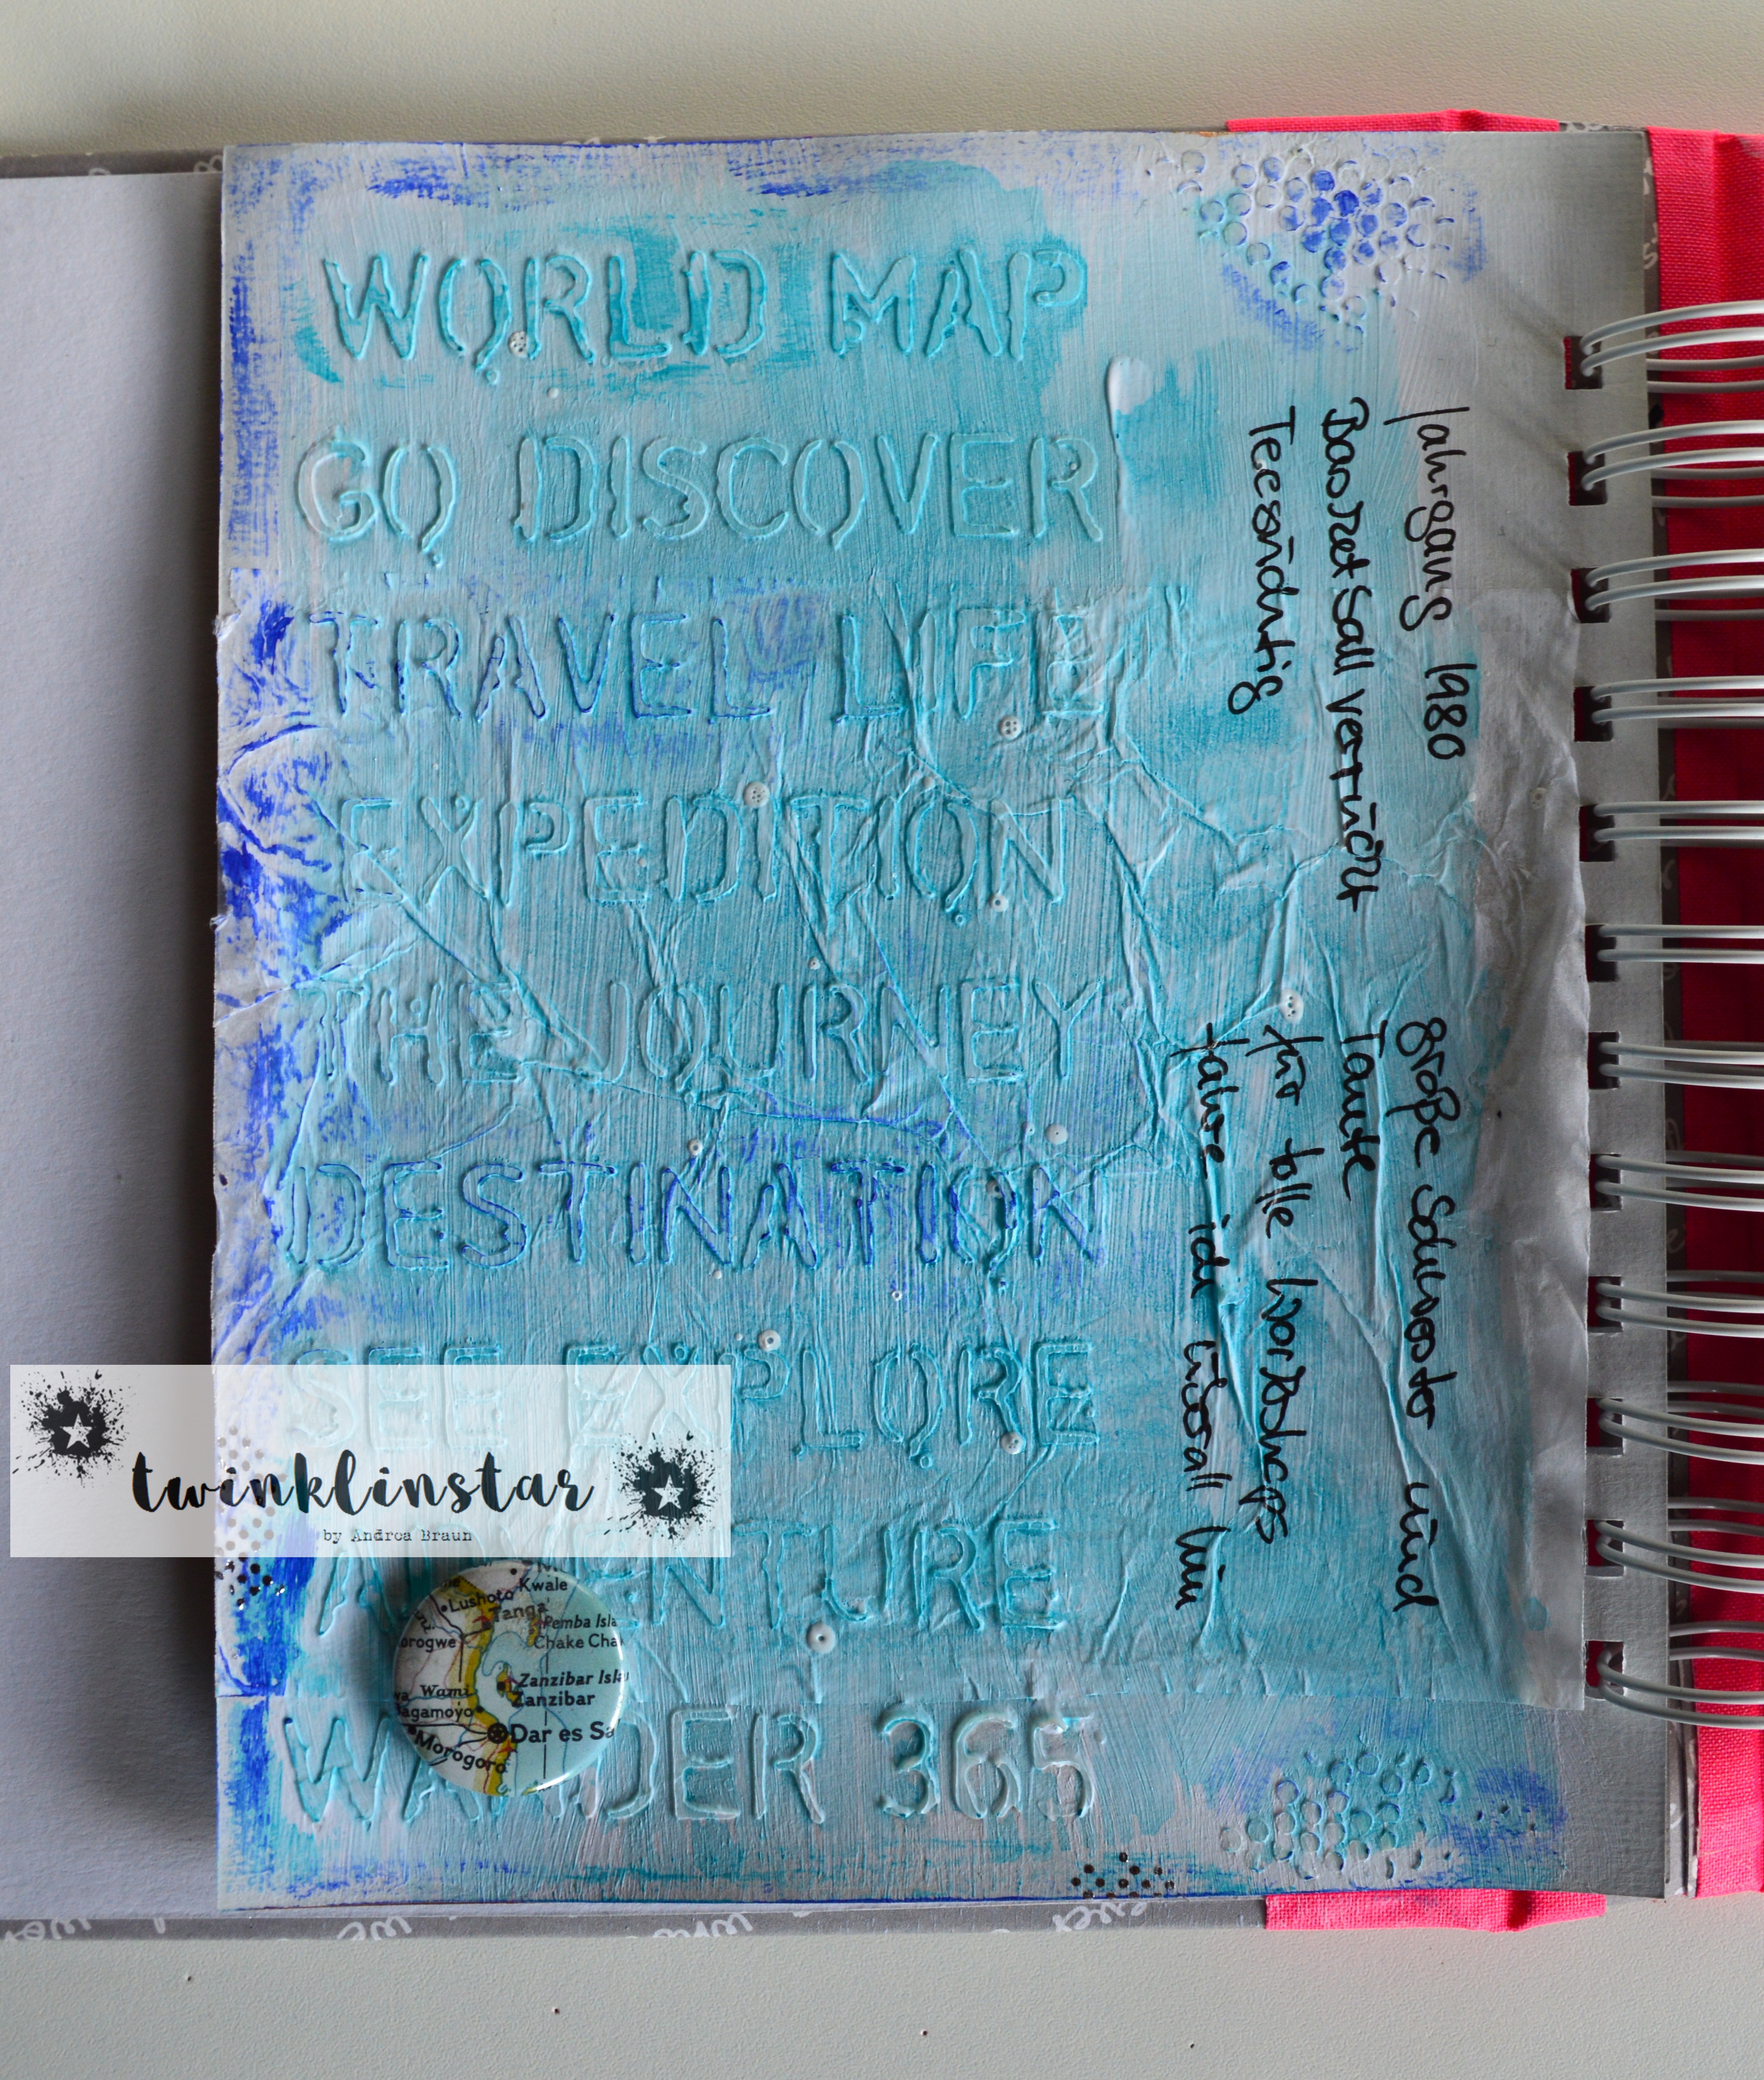 WORLD MAP
GO DISCOVER
TRAVEL LIFE
EXPEDITION
THE JOURNEY
DESTINATION
SEE EXPLORE
ADVENTURE
WANDER 365
Jahrgang 1980
Basketball verrückt
Teesüchtig
große Schwester und
Tante
für tolle Workshops
fahre ich überall hin
twinklinstar
by Andrea Braun
Kwale
Lushoto
Tanga
Pemba Isla
orogwe
Chake Cha
Zanzibar Isla
Wami
Zanzibar
agamoyo
Dar es Sa
Morogoro